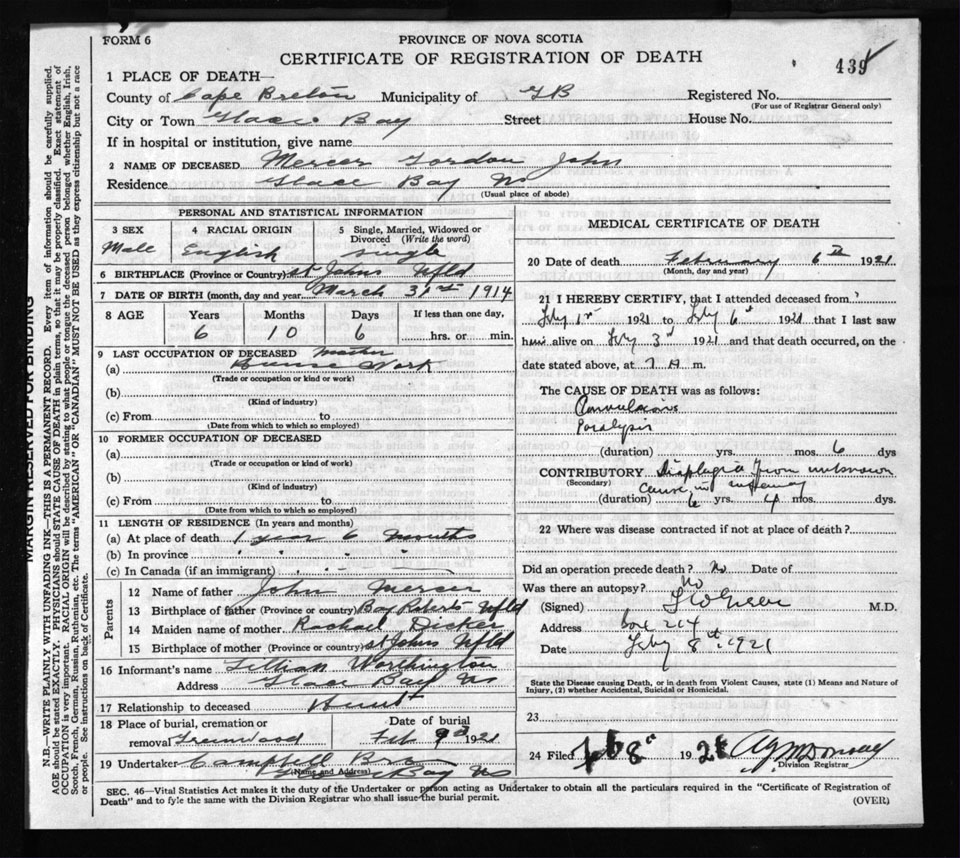 FORM 6
PROVINCE OF NOVA SCOTIA
CERTIFICATE OF REGISTRATION OF DEATH
439
1 PLACE OF DEATH—
County of Cape Breton Municipality of GB Registered No.
(For use of Registrar General only)
City or Town Glace Bay Street House No.
If in hospital or institution, give name
2 NAME OF DECEASED Mercer Gordon John
Residence Glace Bay NS
(Usual place of abode)
PERSONAL AND STATISTICAL INFORMATION
3 SEX 4 RACIAL ORIGIN 5 Single, Married, Widowed or Divorced (Write the word)
Male English Single
6 BIRTHPLACE (Province or Country) St Johns Nfld
7 DATE OF BIRTH (month, day and year) March 31st 1914
8 AGE Years Months Days If less than one day,
6 10 6 hrs. or min.
9 LAST OCCUPATION OF DECEASED
(a) House Work
(Trade or occupation or kind or work)
(b)
(Kind of industry)
(c) From to
(Date from which to which so employed)
10 FORMER OCCUPATION OF DECEASED
(a)
(Trade or occupation or kind of work)
(b)
(Kind of industry)
(c) From to
(Date from which to which so employed)
11 LENGTH OF RESIDENCE (In years and months)
(a) At place of death 1 year 6 months
(b) In province
(c) In Canada (if an immigrant)
Parents
12 Name of father John Mercer
13 Birthplace of father (Province or country) Bay Roberts Nfld
14 Maiden name of mother Rachael Dicker
15 Birthplace of mother (Province or country) St Johns Nfld
16 Informant's name Lillian Worthington
Address Glace Bay NS
17 Relationship to deceased Aunt
18 Place of burial, cremation or removal Greenwood Date of burial Feb 9th 1921
19 Undertaker Campbell Bros
Glace Bay NS
(Name and Address)
MEDICAL CERTIFICATE OF DEATH
20 Date of death February 6th 1921
(Month, day and year)
21 I HEREBY CERTIFY, that I attended deceased from
Feby 1st 1921 to Feby 6th 1921 that I last saw
him alive on Feby 3rd 1921 and that death occurred, on the
date stated above, at 7 A m.
The CAUSE OF DEATH was as follows:
Convulsions
Paralysis
(duration) yrs. mos. 6 dys.
CONTRIBUTORY from unknown
(Secondary) cause in infancy
(duration) 6 yrs. 4 mos. dys.
22 Where was disease contracted if not at place of death?
Did an operation precede death? No Date of
Was there an autopsy? No
(Signed) M.D.
Address Box 214
Date Feby 8th 1921
State the Disease causing Death, or in death from Violent Causes, state (1) Means and Nature of Injury, (2) whether Accidental, Suicidal or Homicidal.
23
24 Filed Feb 8th 1921
Division Registrar
SEC. 46—Vital Statistics Act makes it the duty of the Undertaker or person acting as Undertaker to obtain all the particulars required in the "Certificate of Registration of
Death" and to fyle the same with the Division Registrar who shall issue the burial permit. (OVER)
MARGIN RESERVED FOR BINDING
N.B.—WRITE PLAINLY, WITH UNFADING INK—THIS IS A PERMANENT RECORD. Every item of information should be carefully supplied.
AGE should be stated EXACTLY. PHYSICIANS should STATE CAUSE OF DEATH in plain terms, so that it may be properly classified. Exact statement of
OCCUPATION is very important. RACIAL ORIGIN will be described by stating to what people or tongue the deceased person belonged, whether English, Irish,
Scotch, French, German, Russian, Ruthenian, etc. The terms "AMERICAN" OR "CANADIAN" MUST NOT BE USED as they express citizenship but not a race
or people. See instructions on back of Certificate.